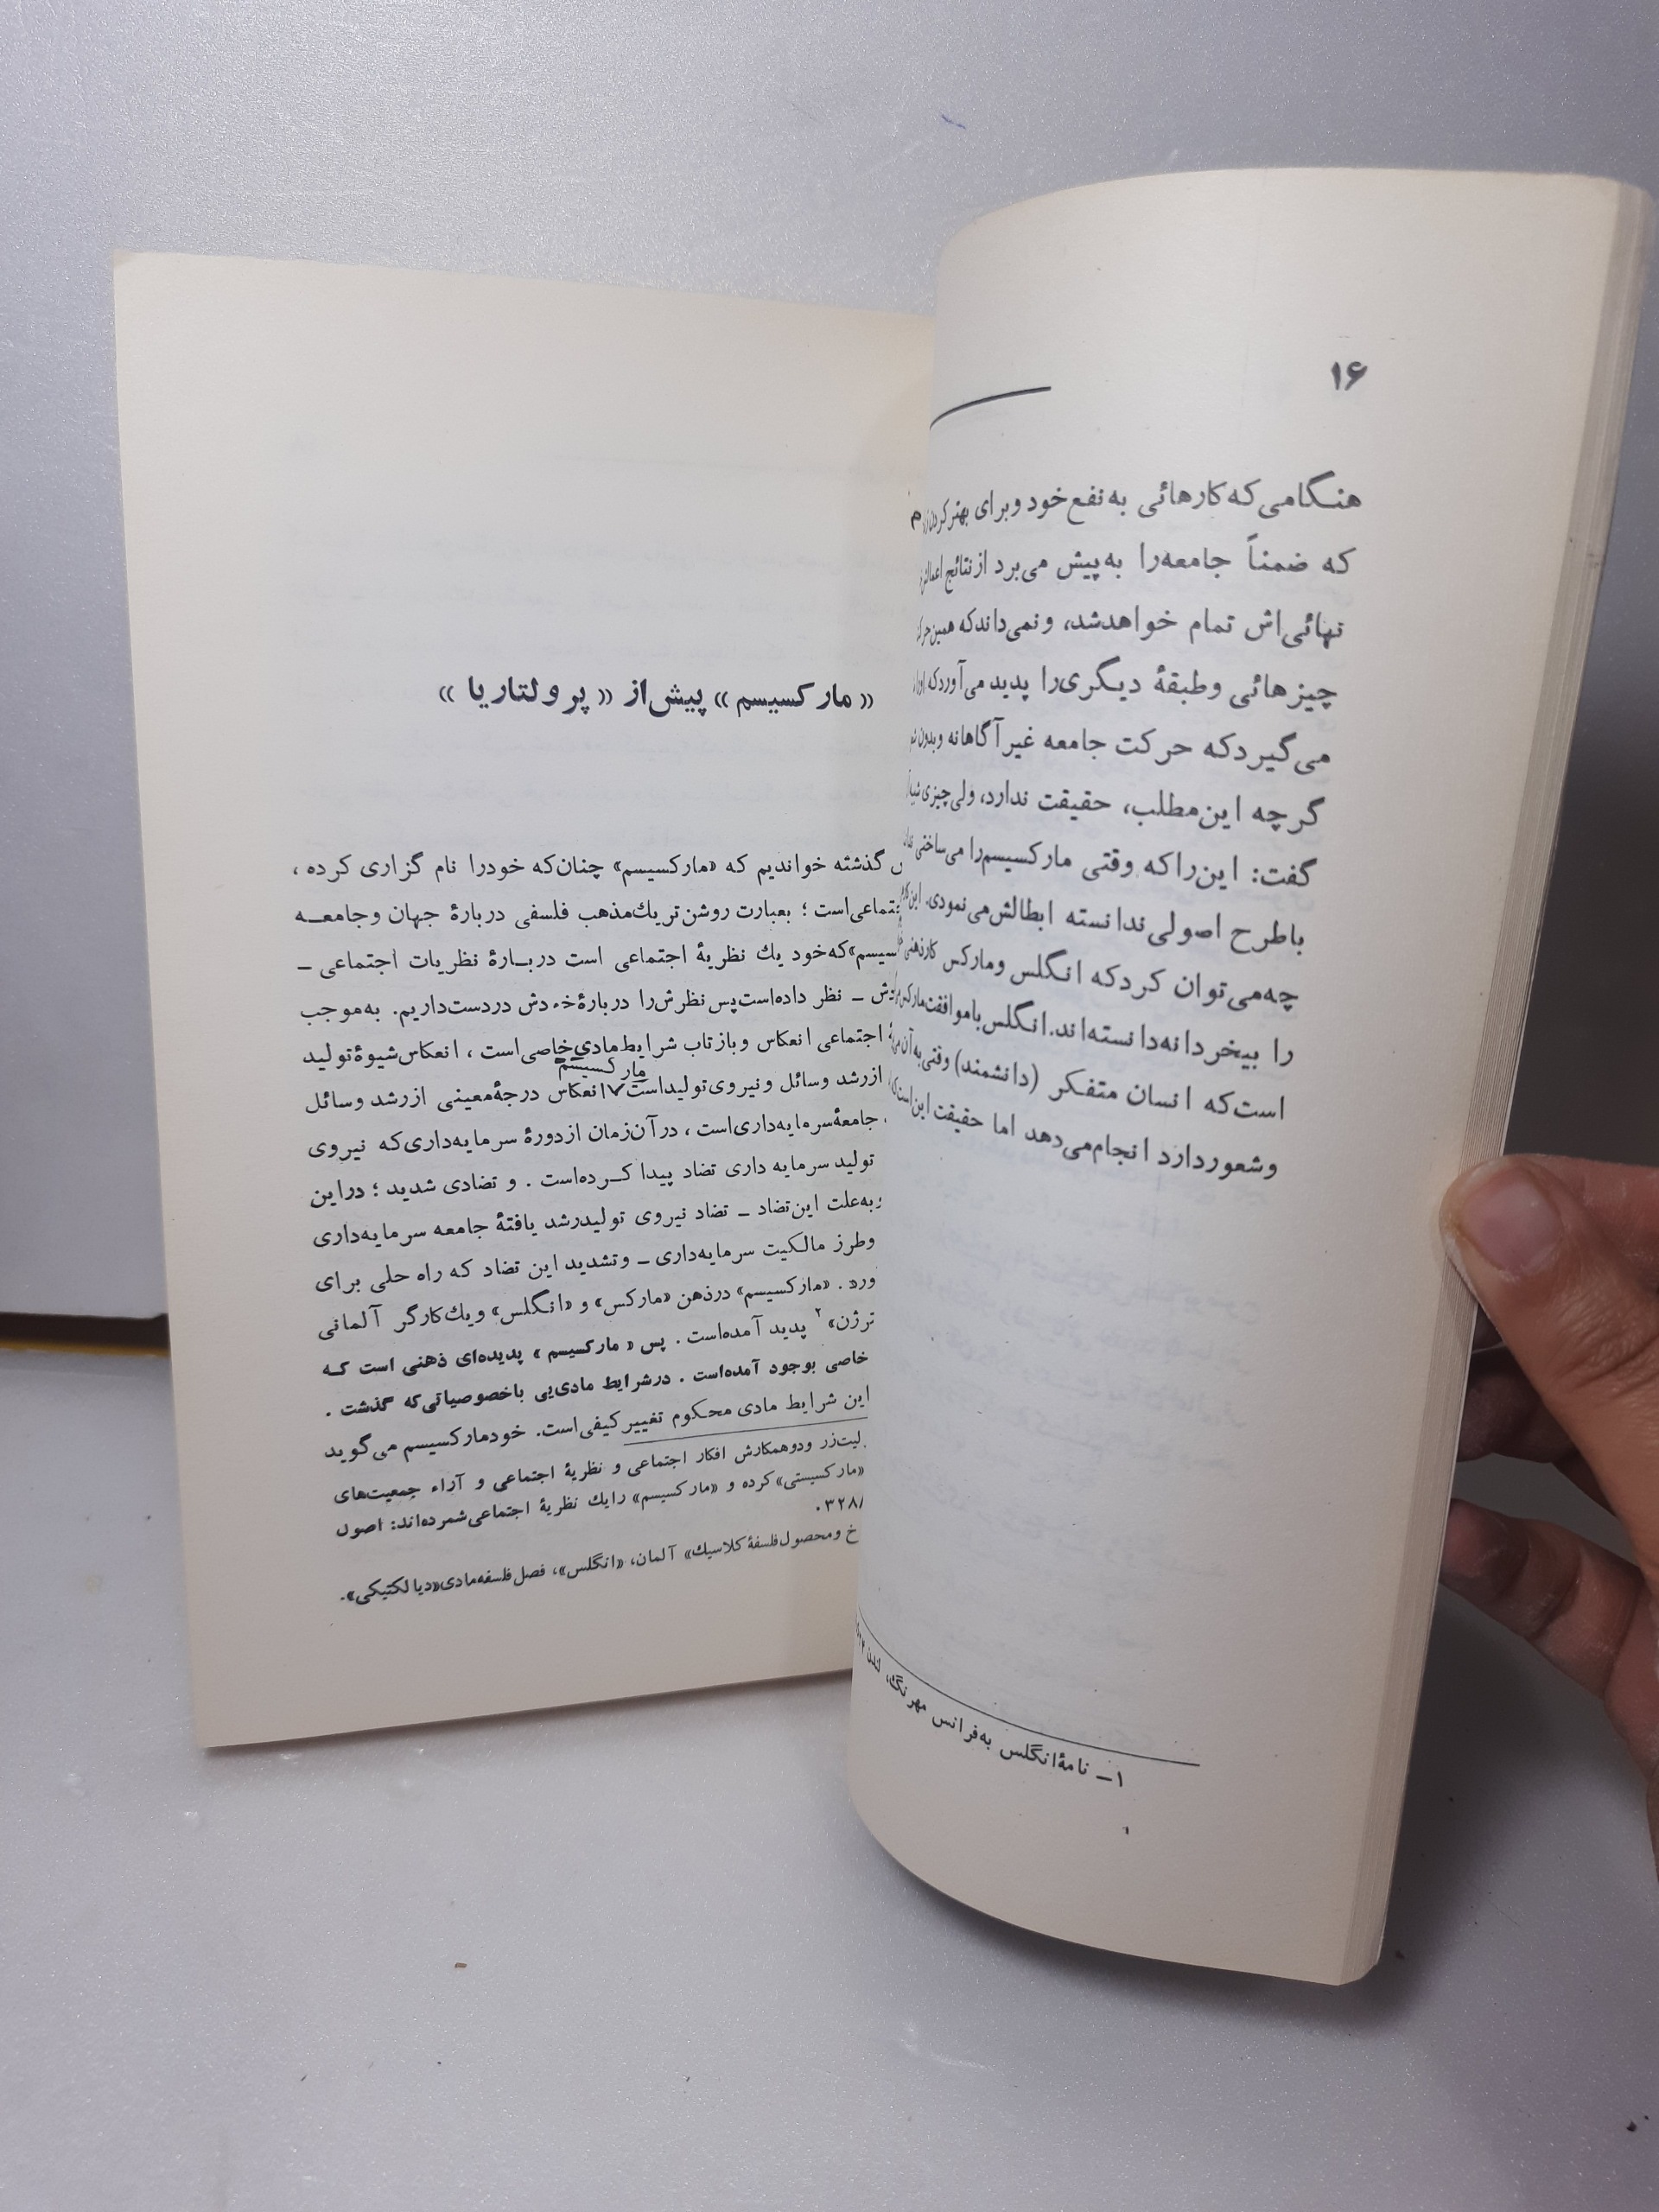 ۱۶
هنگامی‌که کارهائی به‌نفع خود و برای بهتر کردن
که ضمناً جامعه‌را به‌پیش می‌برد از نتائج
نهائی‌اش تمام خواهدشد، و نمی‌داند که همین
چیزهائی و طبقهٔ دیگری‌را پدید می‌آورد که
می‌گیرد که حرکت جامعه غیر آگاهانه و بدون
گرچه این‌مطلب، حقیقت ندارد، ولی چیزی
گفت: این‌را که وقتی مارکسیسم‌را می‌ساختی
باطرح اصولی ندانسته ابطالش می‌نمودی. این
چه‌می‌توان کرد که انگلس و مارکس
را بیخردانه‌دانسته‌اند. انگلس باموافقت
است که انسان متفکر (دانشمند) وقتی به آن
و شعور دارد انجام‌می‌دهد اما حقیقت این‌است
۱ــ نامهٔ انگلس به‌فرانس مهرنگ، لندن
« مارکسیسم » پیش از « پرولتاریا »
گذشته خواندیم که «مارکسیسم» چنان‌که خودرا نام گزاری کرده ،
است ؛ بعبارت روشن‌تر یك‌مذهب فلسفی دربارهٔ جهان و جامعــه
که‌خود یك نظریهٔ اجتماعی است دربــارهٔ نظریات اجتماعی ــ
ــ نظر داده‌است‌پس نظرش‌را دربارهٔ خودش دردست‌داریم. به‌موجب
اجتماعی انعکاس و بازتاب شرایط‌مادی‌خاصی‌است ، انعکاس شیوهٔ تولید
مارکسیسم
از رشد وسائل و نیروی تولیداست انعکاس درجهٔ معینی از رشد وسائل
جامعهٔ سرمایه‌داری‌است ، در آن‌زمان از دورهٔ سرمایه‌داری‌که نیروی
تولید سرمایه داری تضاد پیدا کــرده‌است . و تضادی شدید ؛ دراین
به‌علت این‌تضاد ــ تضاد نیروی تولیدرشد یافتهٔ جامعه سرمایه‌داری
وطرز مالکیت سرمایه‌داری ــ وتشدید این تضاد که راه حلی برای
«مارکسیسم» درذهن «مارکس» و «انگلس» ویك‌کارگر آلمانی
۲ پدید آمده‌است . پس « مارکسیسم » پدیده‌ای ذهنی است کــه
خاصی بوجود آمده‌است . درشرایط مادی‌یی باخصوصیاتی‌که گذشت .
این شرایط مادی محکوم تغییر کیفی‌است. خودمارکسیسم می‌گوید
ودوهمکارش افکار اجتماعی و نظریهٔ اجتماعی و آراء جمعیت‌های
«مارکسیستی» کرده و «مارکسیسم» رایك نظریهٔ اجتماعی‌شمرده‌اند: اصول
۳۲۸.
ومحصول فلسفهٔ کلاسیك» آلمان، «انگلس»، فصل فلسفه‌مادی«دیالکتیکی».